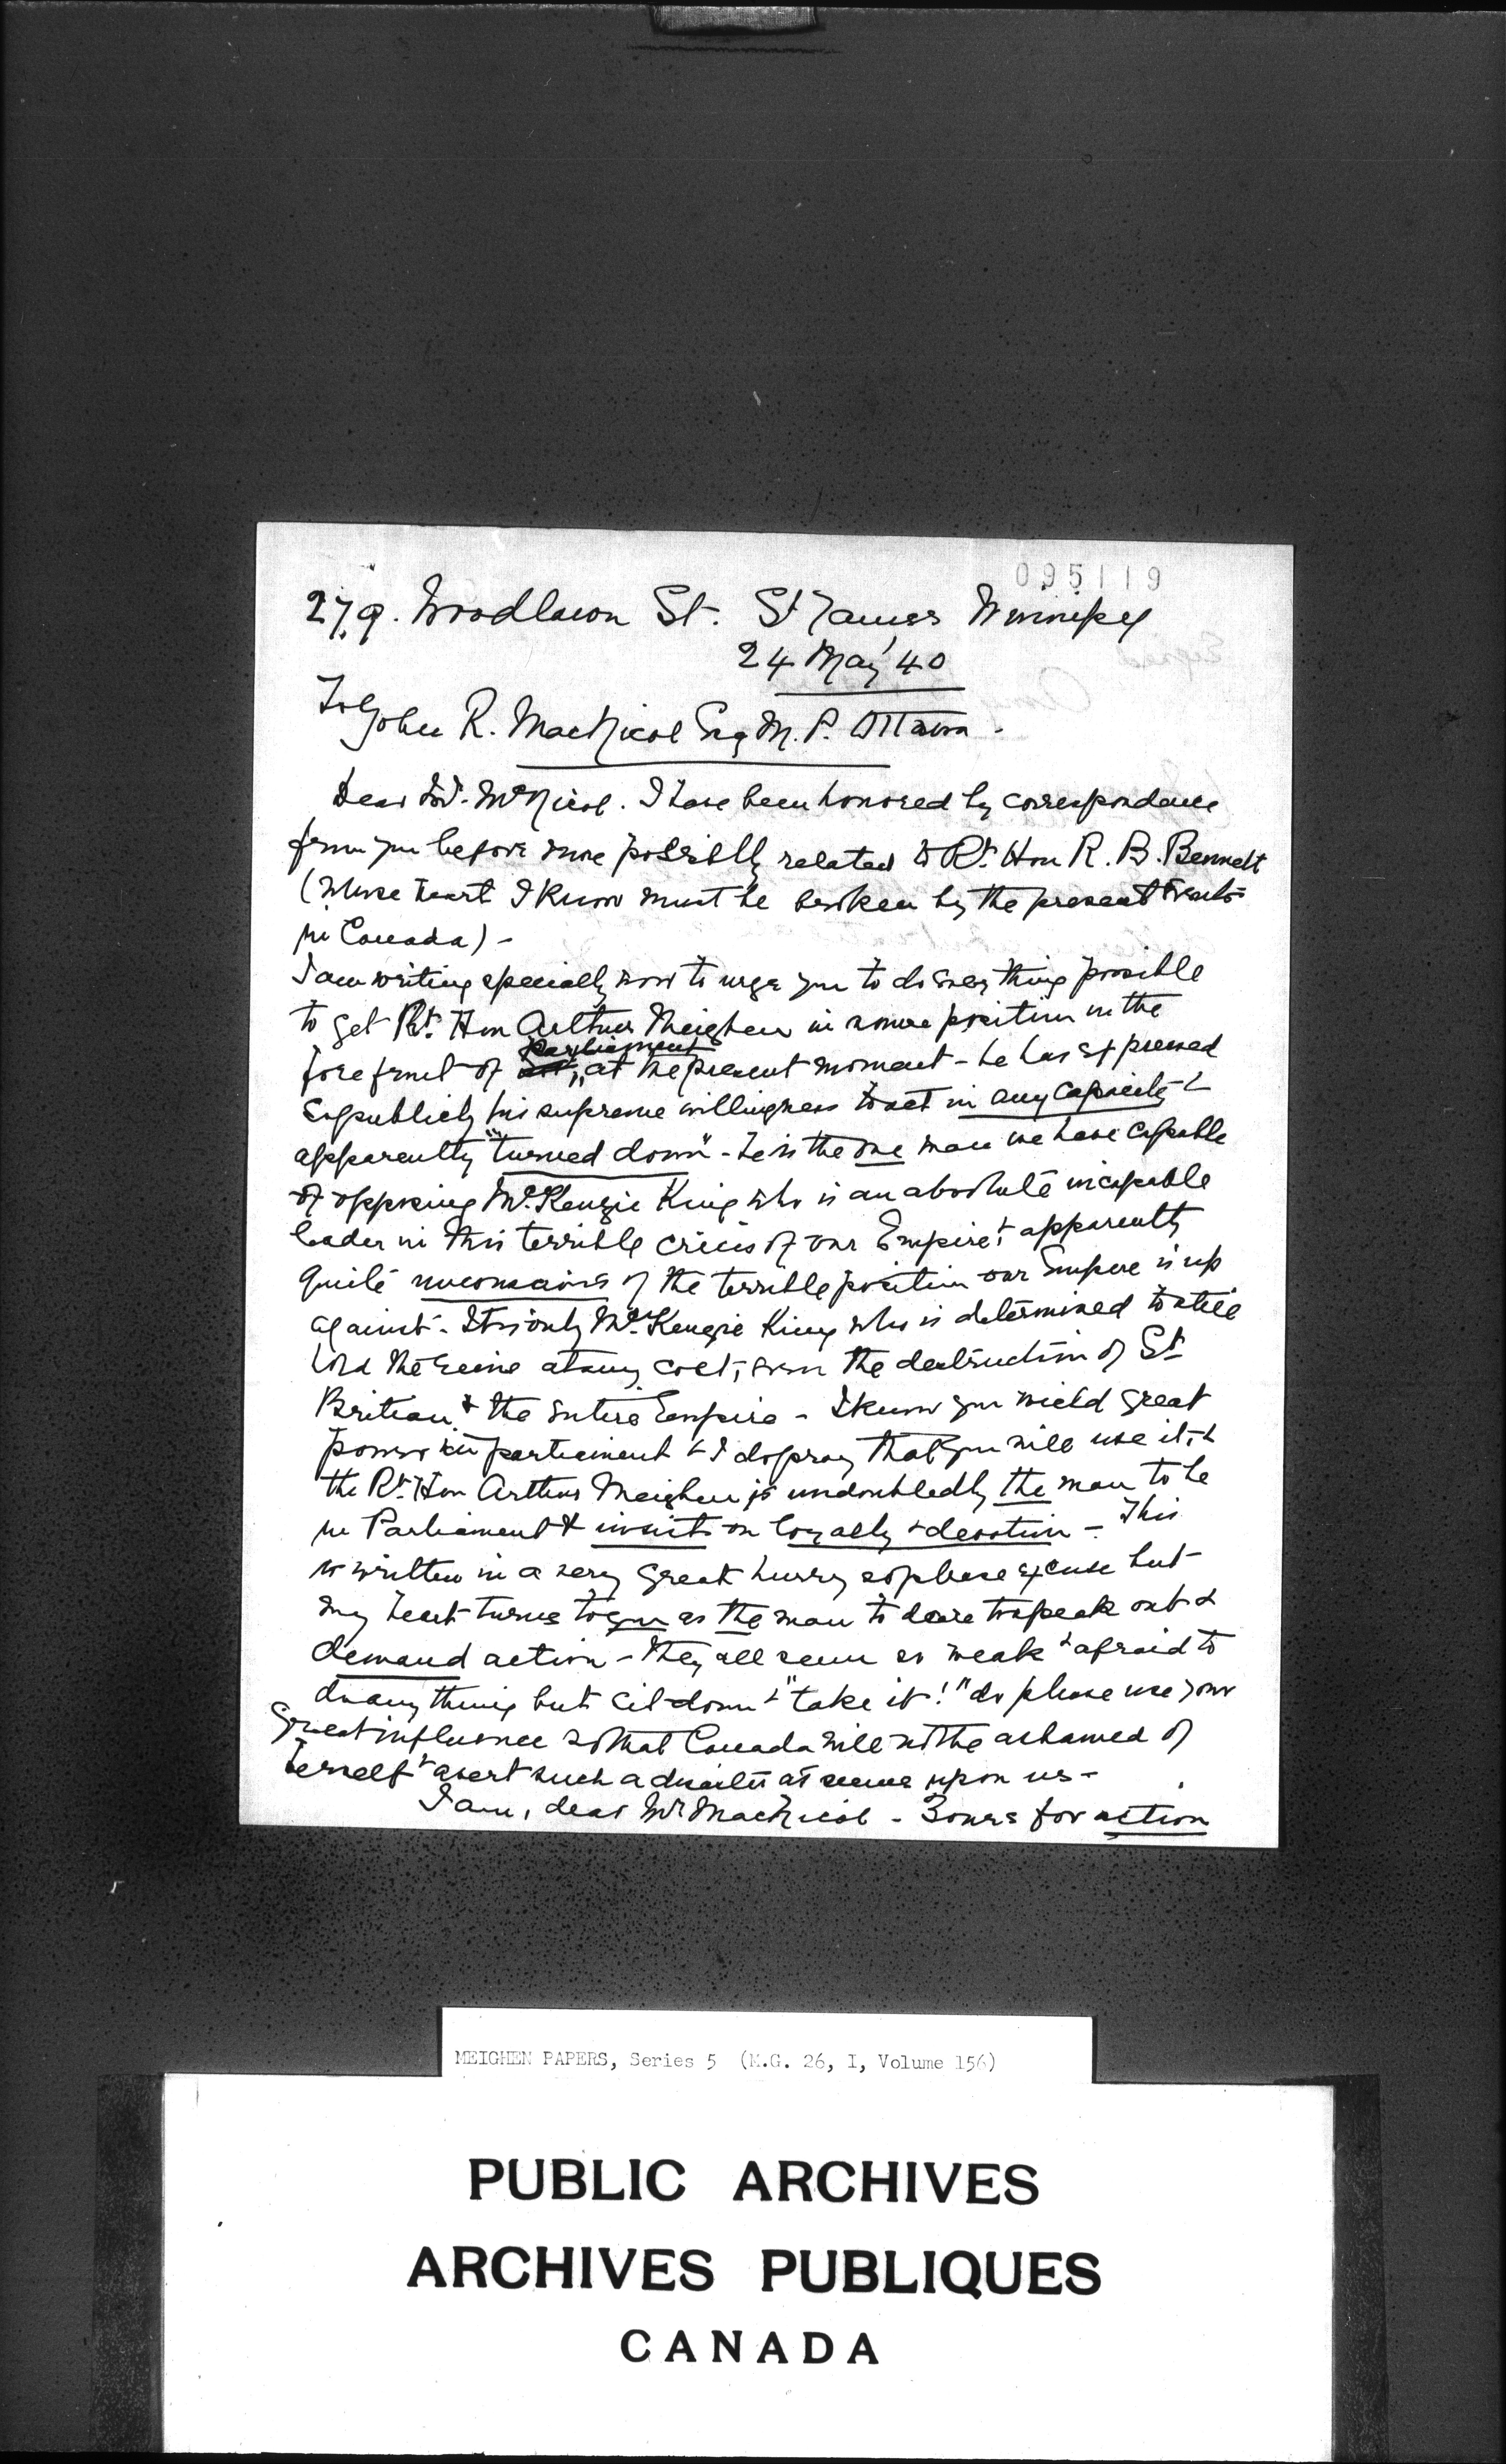 095119
279. Woodlawn St. St James Winnipeg
24 May '40
To John R. MacNicol Esq M.P. Ottawa.
Dear Mr. McNicol. I have been honored by correspondence
from you before now possibly related to Rt. Hon R. B. Bennett
(whose heart I know must be broken by the present events
in Canada) -
I am writing specially now to urge you to do everything possible
to get Rt. Hon Arthur Meighen in some position in the
forefront of Parliament at the present moment - he has expressed
so publicly his supreme willingness to act in any capacity &
apparently "turned down" - he is the one man we have capable
of opposing McKenzie King who is an absolute incapable
leader in this terrible crisis of our Empire & apparently
quite unconscious of the terrible position our Empire is up
against. It is only McKenzie King who is determined to still
hold the reins at any cost, even the destruction of Gt
Britian & the entire Empire - I know you wield great
power in parliament & I do pray that you will use it, &
the Rt. Hon Arthur Meighen is undoubtedly the man to be
in Parliament & insist on loyalty & devotion - This
is written in a very great hurry so please excuse but
my heart turns to you as the man to dare to speak out &
demand action - they all seem so weak & afraid to
do anything but sit down & "take it!" do please use your
great influence so that Canada will not be ashamed of
herself & avert such a disaster as seems upon us -
I am, dear Mr MacNicol - Yours for action
MEIGHEN PAPERS, Series 5 (M.G. 26, I, Volume 156)
PUBLIC ARCHIVES
ARCHIVES PUBLIQUES
CANADA